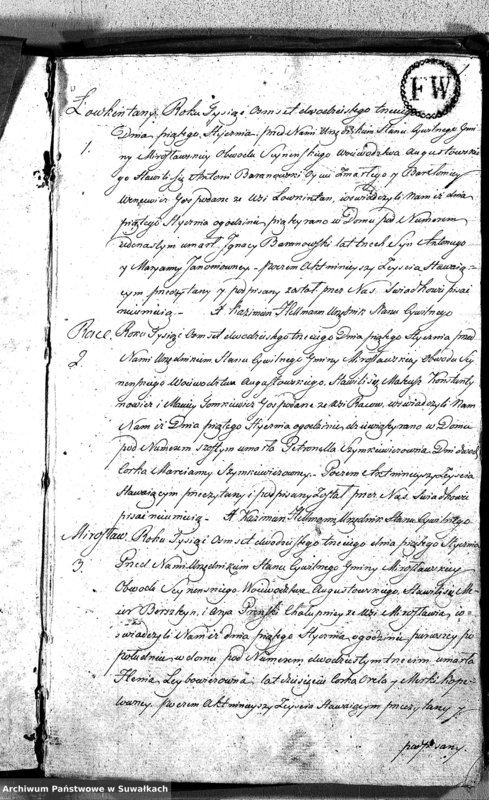 1
FW
Łowkintany. Roku Tysiąc Osmset dwódziestego trzeciego
1. Dnia piątego Stycznia przed Nami Urzędnikiem Stanu Cywilnego Gmi
ny Mirosławskiey Obwodu Seynenskiego Woiewodztwa Augustowskie
go Stawili się Antoni Baranowski Oyciec Zmarłego y Bartłomiey
Gospodarze ze Wsi oswiadczyli Nam iż dnia
piątego Stycznia o godzinie piątey rano w Domu pod Numerem
iedenastym umarł Ignacy Baranowski lat trzech Syn Antoniego
y Maryanny Janoniowney - Poczem Akt ninieyszy Zeyscia Stawaią-
cym przeczytany y podpisany został przez Nas. Swiadkowie pisać
nieumieią - X. Kazimierz Hellmann Urzędnik Stanu Cywilnego
Race. Roku Tysiąc Osmset dwódziestego trzeciego Dnia piątego Stycznia przed
2. Nami Urzędnikiem Stanu Cywilnego Gminy Mirosławskiey Obwodu Sey
nenskiego Woiewodztwa Augustowskiego, Stawili się Mateusz Konstanty
nowicz i Maciey Tomkiewicz Gospodarze ze Wsi Racow, oswiadczyli Nam
Nam iż Dnia piątego Stycznia o godzinie dziewiątey rano w Domu
pod Numerem szostym umarła Petronella Szymkiewiczowna - Dni dwóch
Corka Marcianny Szymkiewiczowney. - Poczem Akt ninieyszy Zeyscia
Stawaiącym przeczytany i podpisany Został przez Nas Swiadkowie
pisać nieumieią - X. Kazimierz Hellmann Urzędnik Stanu Cywilnego
Mirosław. Roku Tysiąc Osmset dwódziestego trzeciego dnia piątego Stycznia
3. Przed Nami Urzędnikiem Stanu Cywilnego Gminy Mirosławskiey
Obwodu Seynenskiego Woiewodztwa Augustowskiego, Stawili się Me
ier i Chałupnicy ze Wsi Mirosławia, i o-
swiadczyli Nam iż dnia piątego Stycznia o godzinie pierwszey po
południu w domu pod Numerem dwódziestym trzecim umarła
Henia Leybowiczowna, lat dziesięć Corka Orela y Merki
Poczem Akt ninieyszy Zeyscia Stawaiącym przeczytany y
podpisany.
Archiwum Państwowe w Suwałkach